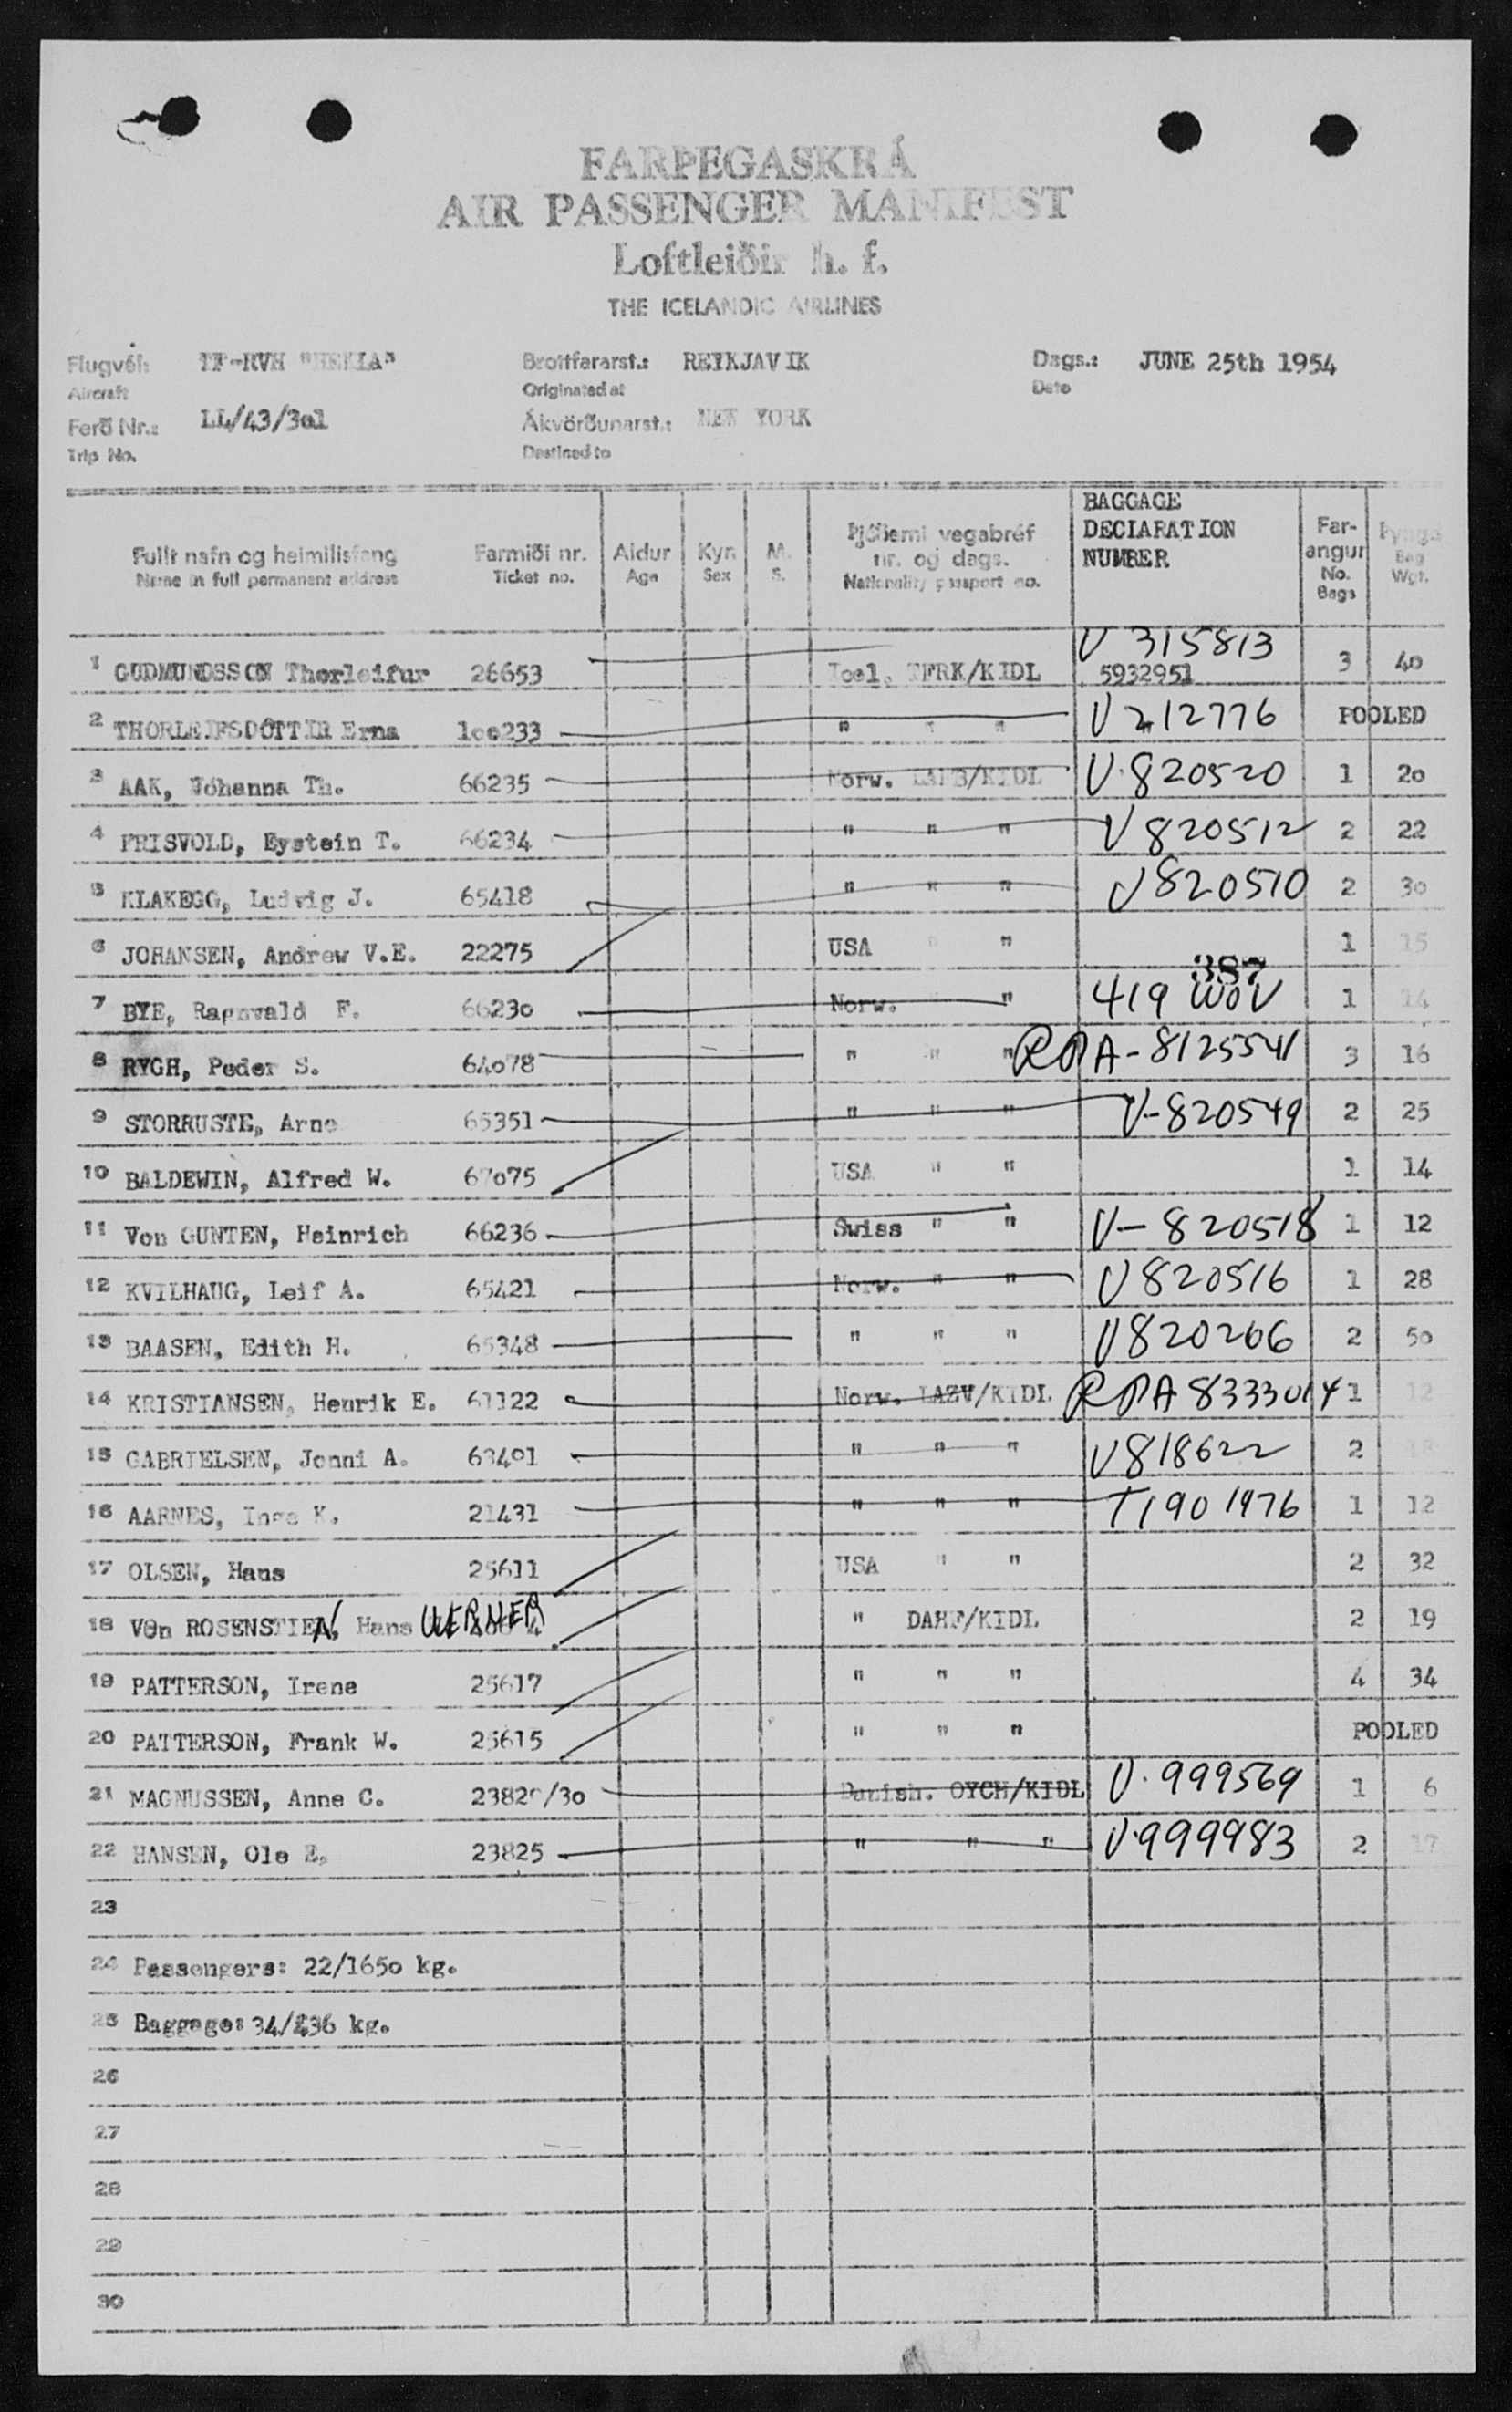 FARÞEGASKRÁ
AIR PASSENGER MANIFEST
Loftleiðir h. f.
THE ICELANDIC AIRLINES
Flugvél: TF-RVH "HEKLA" Brottfararst.: REYKJAVIK Dags.: JUNE 25th 1954
Aircraft Originated at Date
Ferð Nr.: LL/43/3o1 Ákvörðunarst.: NEW YORK
Trip No. Destined to
Fullt nafn og heimilisfang Farmiði nr. Aldur Kyn M. Þjóðerni vegabréf nr. og dags. BAGGAGE DECLARATION NUMBER Far-angur Þyngd
Name in full permanent address Ticket no. Age Sex S. Nationality passport no. No. Bags Bag Wgt.
V 315813
1 GUDMUNDSSON Thorleifur 26653 Icel. TFRK/KIDL 5932951 3 4o
2 THORLEIFSDÓTTIR Erna 1oo233 " " " V 212776 " POOLED
3 AAK, Jóhanna Th. 66235 Norw. /KIDL V 820520 1 2o
4 FRISVOLD, Eystein T. 66234 " " " V 820512 2 22
5 KLAKEGG, Ludvig J. 65418 " " " V 820510 2 3o
6 JOHANSEN, Andrew V.E. 22275 USA " " 1 15
387
7 BYE, Ragnvald F. 6623o Norw. " " 419 WOV 1 14
8 RYGH, Peder S. 64o78 " " " RPA-8125541 3 16
9 STORRUSTE, Arne 65351 " " " V-820549 2 25
10 BALDEWIN, Alfred W. 67o75 USA " " 1 14
11 Von GUNTEN, Heinrich 66236 Swiss " " V-820518 1 12
12 KVILHAUG, Leif A. 65421 Norw. " " V 820516 1 28
13 BAASEN, Edith H. 65348 " " " V820206 2 5o
14 KRISTIANSEN, Henrik E. 61122 Norw. LAZV/KIDL RPA 8333014 1 12
15 GABRIELSEN, Jonni A. 634o1 " " " V818622 2 18
16 AARNES, Inga K. 21431 " " " T1901976 1 12
17 OLSEN, Hans 25611 USA " " 2 32
18 VOn ROSENSTIEN, Hans WERNER " DAHF/KIDL 2 19
19 PATTERSON, Irene 25617 " " " 4 34
20 PATTERSON, Frank W. 25615 " " " POOLED
21 MAGNUSSEN, Anne C. /3o Danish. OYCH/KIDL V.999569 1 6
22 HANSEN, Ole E. 23825 " " " V.999983 2 17
23
24 Passengers: 22/165o kg.
25 Baggage: 34/436 kg.
26
27
28
29
30